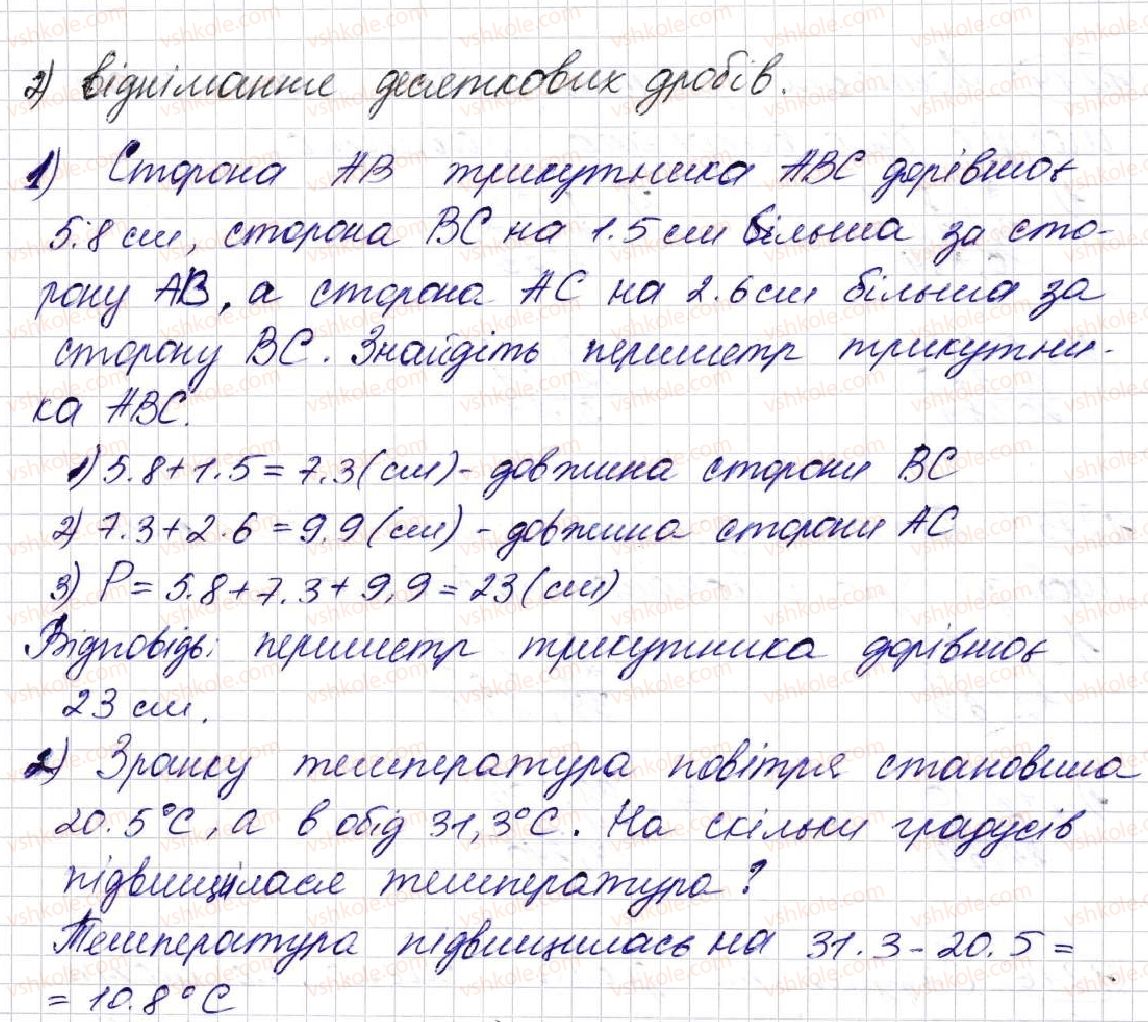 2) віднімання десяткових дробів.
1) Сторона АВ трикутника АВС дорівнює
5.8 см, сторона ВС на 1.5 см більша за сто-
рону АВ, а сторона АС на 2.6 см більша за
сторону ВС. Знайдіть периметр трикутни-
ка АВС.
1) 5.8 + 1.5 = 7.3 (см) - довжина сторони ВС
2) 7.3 + 2.6 = 9.9 (см) - довжина сторони АС
3) Р = 5.8 + 7.3 + 9,9 = 23 (см)
Відповідь: периметр трикутника дорівнює
23 см.
2) Зранку температура повітря становила
20.5°С, а в обід 31,3°С. На скільки градусів
підвищилася температура?
Температура підвищилась на 31.3 - 20.5 =
= 10.8°С